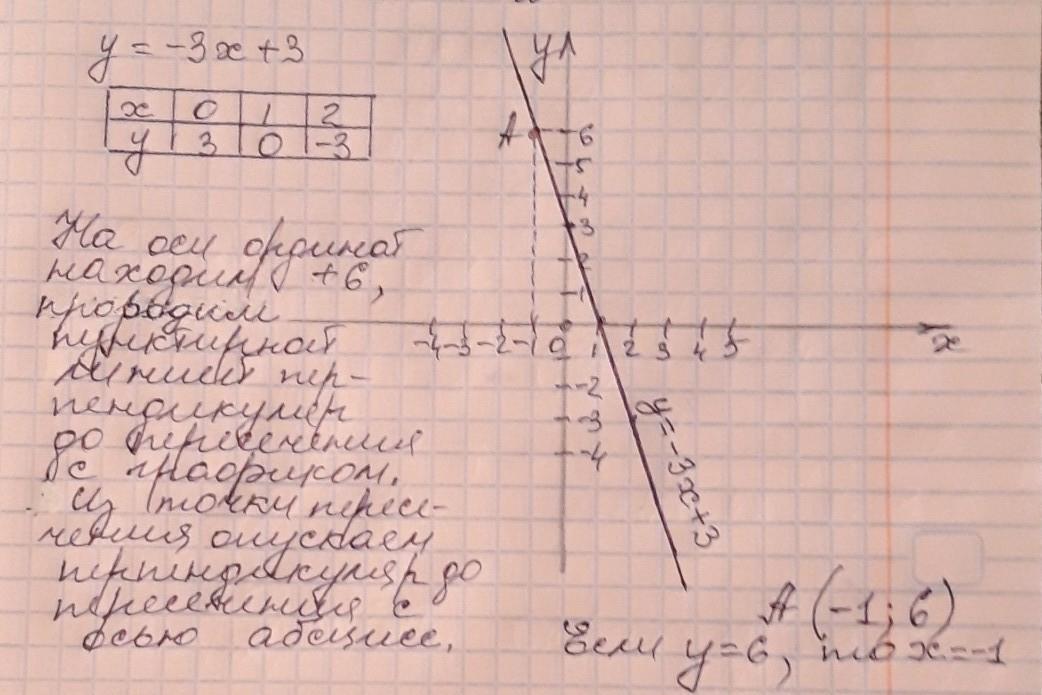 y = -3x + 3
x 0 1 2
y 3 0 -3
На оси ординат
находим +6,
проводим
пунктирной
линией пер-
пендикуляр
до пересечения
с графиком.
Из точки пересе-
чения опускаем
перпендикуляр до
пересечения с
осью абсцисс.
y
A
6
5
4
3
2
1
-4 -3 -2 -1 0 1 2 3 4 5
x
-2
-3
-4
y=-3x+3
A (-1; 6)
Если y=6, то x=-1